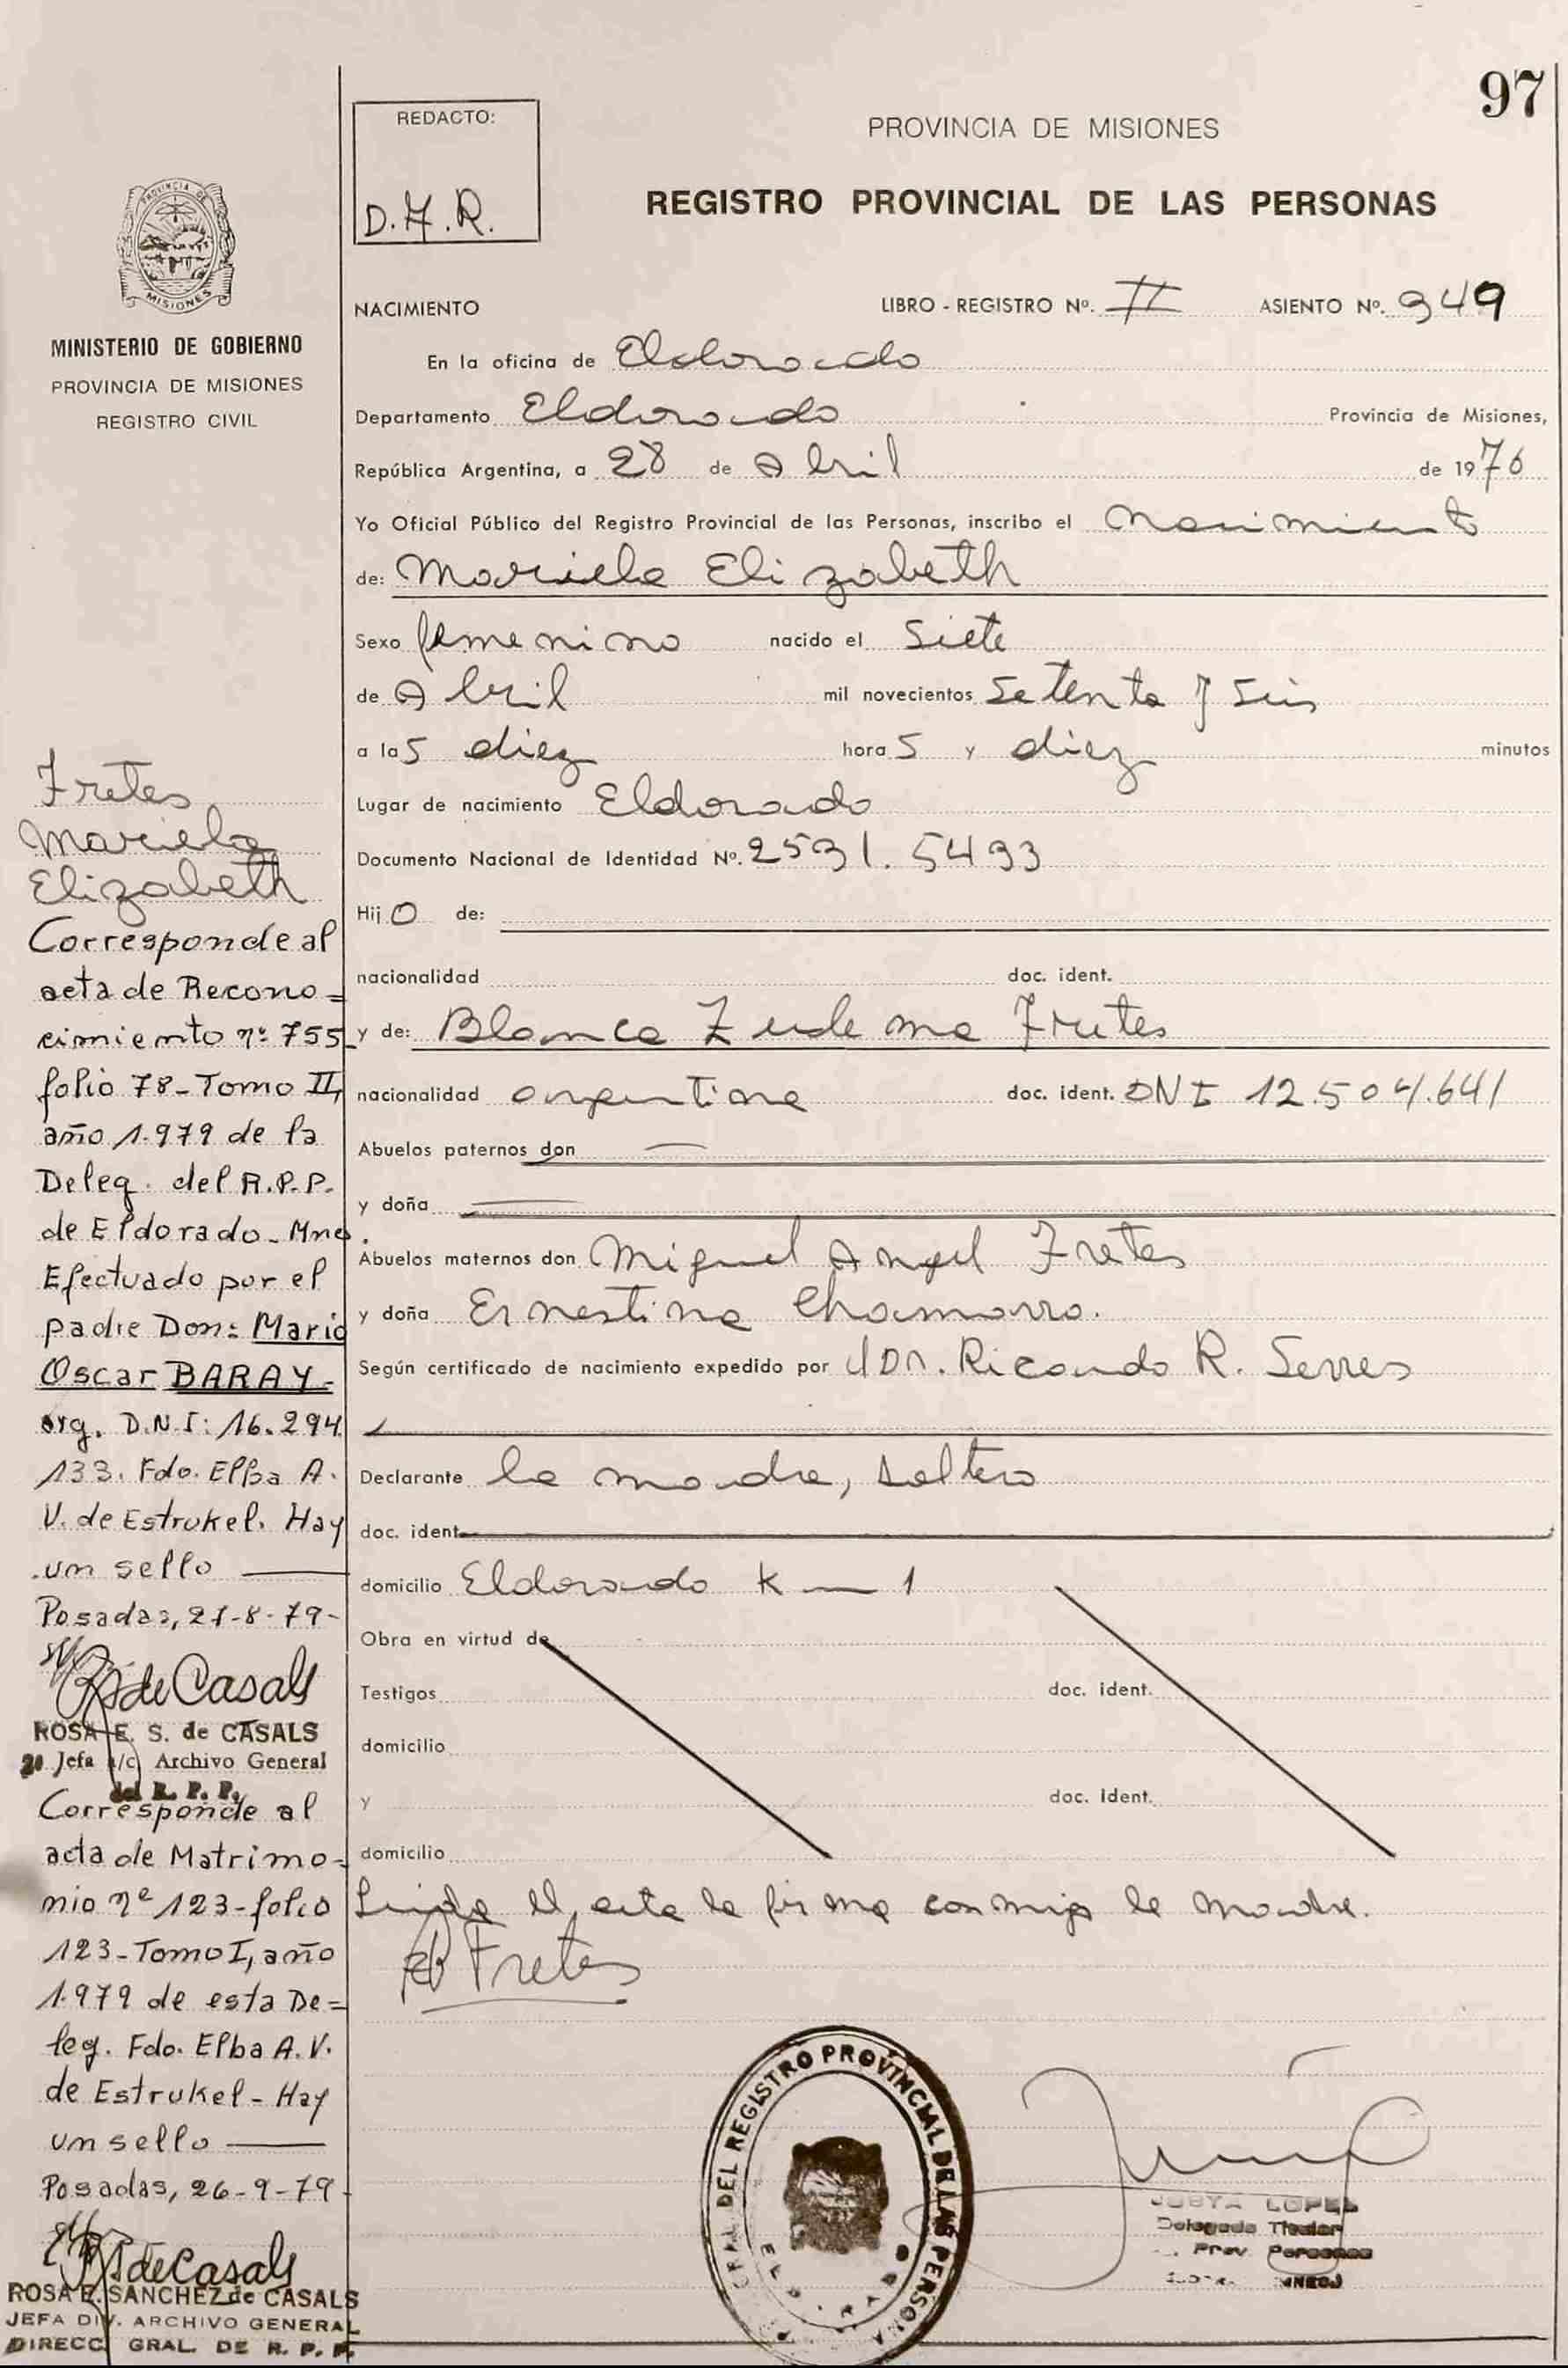 97
REDACTO:
D.A.R.
PROVINCIA DE MISIONES
REGISTRO PROVINCIAL DE LAS PERSONAS
PROVINCIA DE
MISIONES
MINISTERIO DE GOBIERNO
PROVINCIA DE MISIONES
REGISTRO CIVIL
NACIMIENTO LIBRO - REGISTRO Nº. II ASIENTO Nº. 949
En la oficina de Eldorado
Departamento Eldorado Provincia de Misiones,
República Argentina, a 28 de Abril de 1976
Yo Oficial Público del Registro Provincial de las Personas, inscribo el nacimiento
de: Mariela Elizabeth
Sexo femenino nacido el siete
de Abril mil novecientos setenta y seis
a las diez horas y diez minutos
Lugar de nacimiento Eldorado
Documento Nacional de Identidad Nº. 2531.5493
Hijo de:
nacionalidad doc. ident.
y de: Blanca Zudema Fretes
nacionalidad argentina doc. ident. DNI 12.504.641
Abuelos paternos don
y doña
Abuelos maternos don Miguel Angel Fretes
y doña Ernestina Chamorro.
Según certificado de nacimiento expedido por Dr. Ricardo R. Serres
Declarante la madre, soltera
doc. ident.
domicilio Eldorado Km 1
Obra en virtud de
Testigos doc. ident.
domicilio
y doc. ident.
domicilio
Leida el acta la firma conmigo la madre.
Fretes
Fretes
Mariela
Elizabeth
Corresponde al
acta de Recono=
cimiento nº 755
folio 78-Tomo II,
año 1.979 de la
Deleg. del R.P.P.
de Eldorado-Mnes.
Efectuado por el
padre Don: Mario
Oscar BARAY-
arg. D.N.I: 16.294.
133. Fdo. Elba A.
V. de Estrukel. Hay
un sello
Posadas, 21-8-79-
RS de Casals
ROSA E. S. de CASALS
Jefa a/c Archivo General
del R. P. P.
Corresponde al
acta de Matrimo-
nio nº 123-folio
123-Tomo I, año
1.979 de esta De=
leg. Fdo. Elba A.V.
de Estrukel-Hay
un sello
Posadas, 26-9-79-
RS de Casals
ROSA E. SANCHEZ de CASALS
JEFA DIV. ARCHIVO GENERAL
DIRECC. GRAL. DE R. P. P.
GRAL. DEL REGISTRO PROVINCIAL DE LAS PERSONAS
LOPEZ
Delegada Titular
Prov. Personas